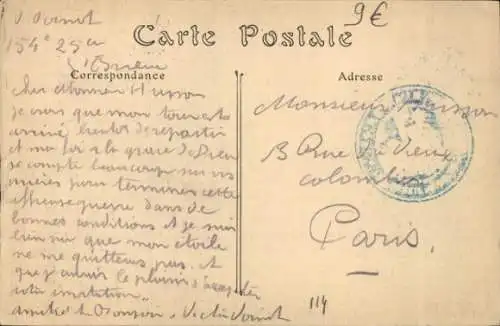 V. Voinot
9€
154e 25 Cie
Carte Postale
St Brieuc
Correspondance
Adresse
Cher Monsieur Husson
je crois que mon tour est
arrivé bientôt de repartir
et ma foi à la grace de Dieu
je compte beaucoup sur vos
prières pour terminer cette
affreuse guerre dans de
bonnes conditions et je suis
bien sûr que mon étoile
ne me quittera pas. et
que j'aurai le plaisir d'accepter
votre invitation.
amitiés et Bonjour. Victor Voinot
Monsieur Husson
3 Rue Vieux
colombier
Paris.
114